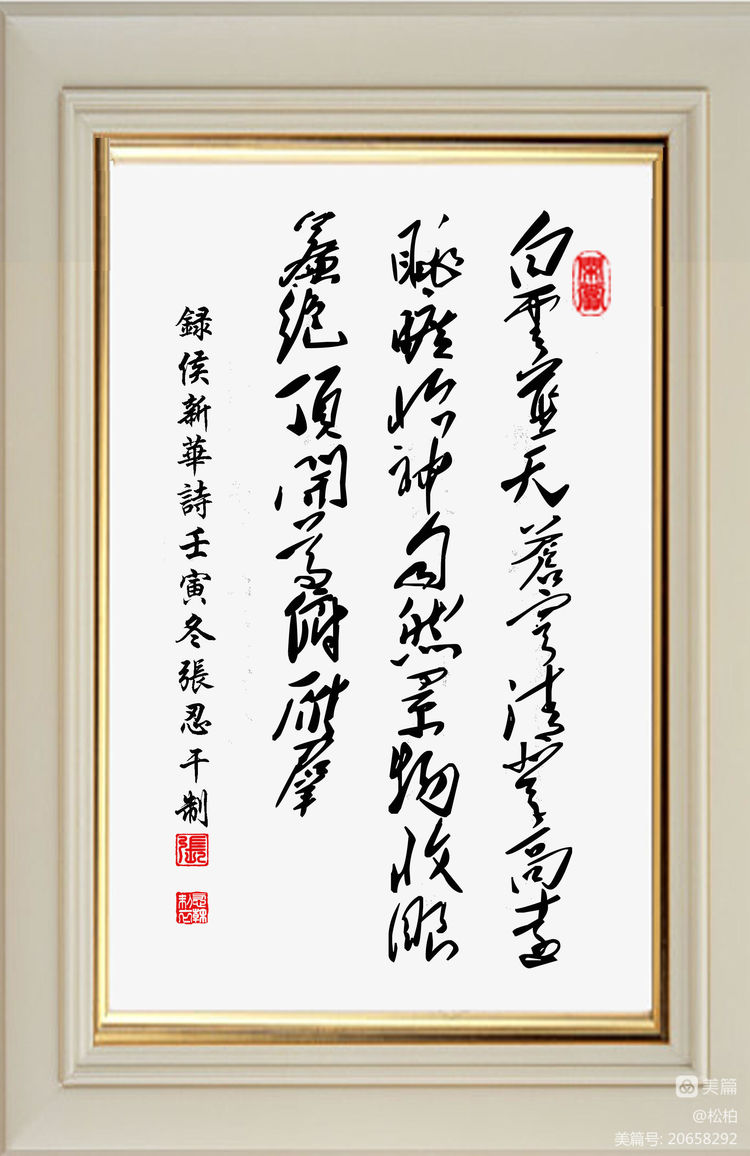 白雲藍天蒼穹清登高遠
眺曠怡神自然景物收眼
簾絶頂開俯雁羣
録侯新華詩壬寅冬張忍干制
張
美篇
@松柏
美篇号: 20658292